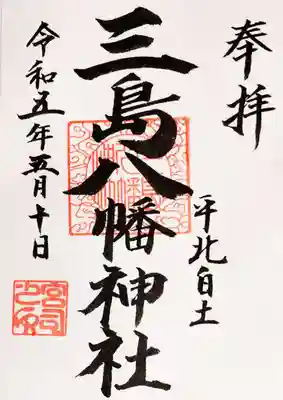 奉拝
平北白土
三島八幡神社
令和五年五月十日
宮司之印